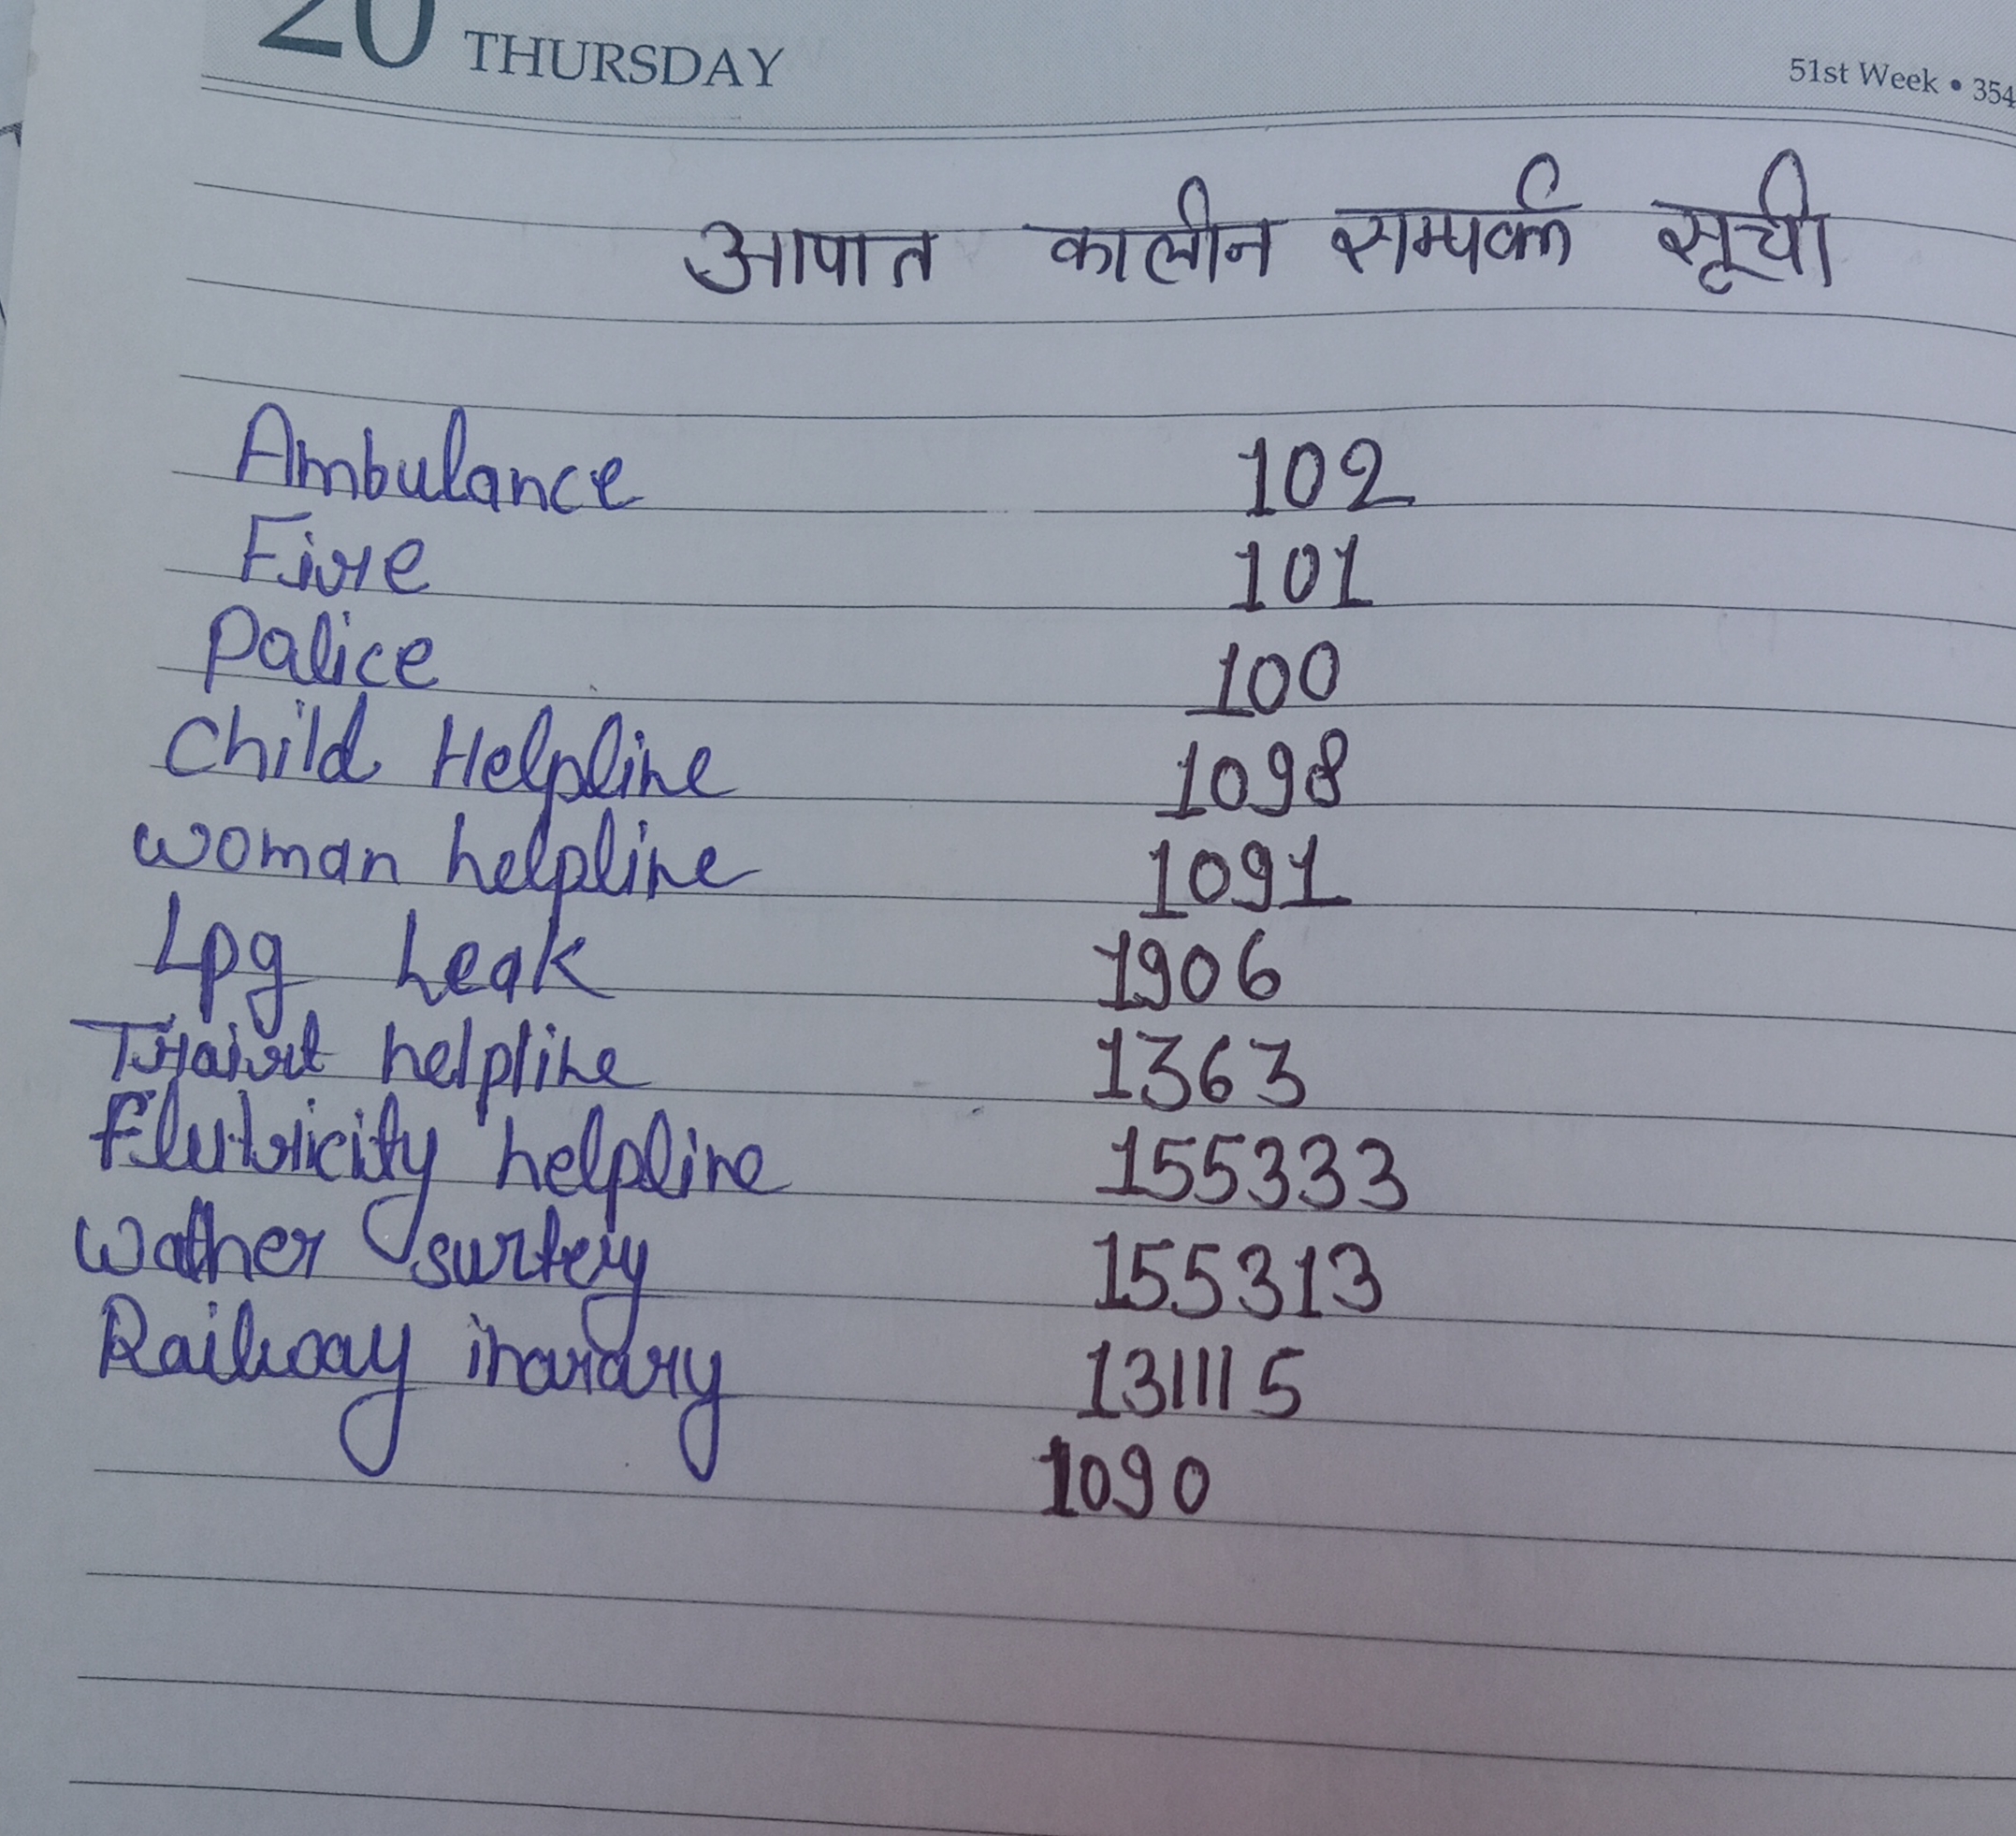 20 THURSDAY 51st Week • 354
आपात कालीन सम्पर्क सूची
Ambulance 102
Fire 101
Palice 100
Child Helpline 1098
woman helpline 1091
Lpg Leak 1906
helpline 1363
helpline 155333
wather 155313
Railway 131115
1090